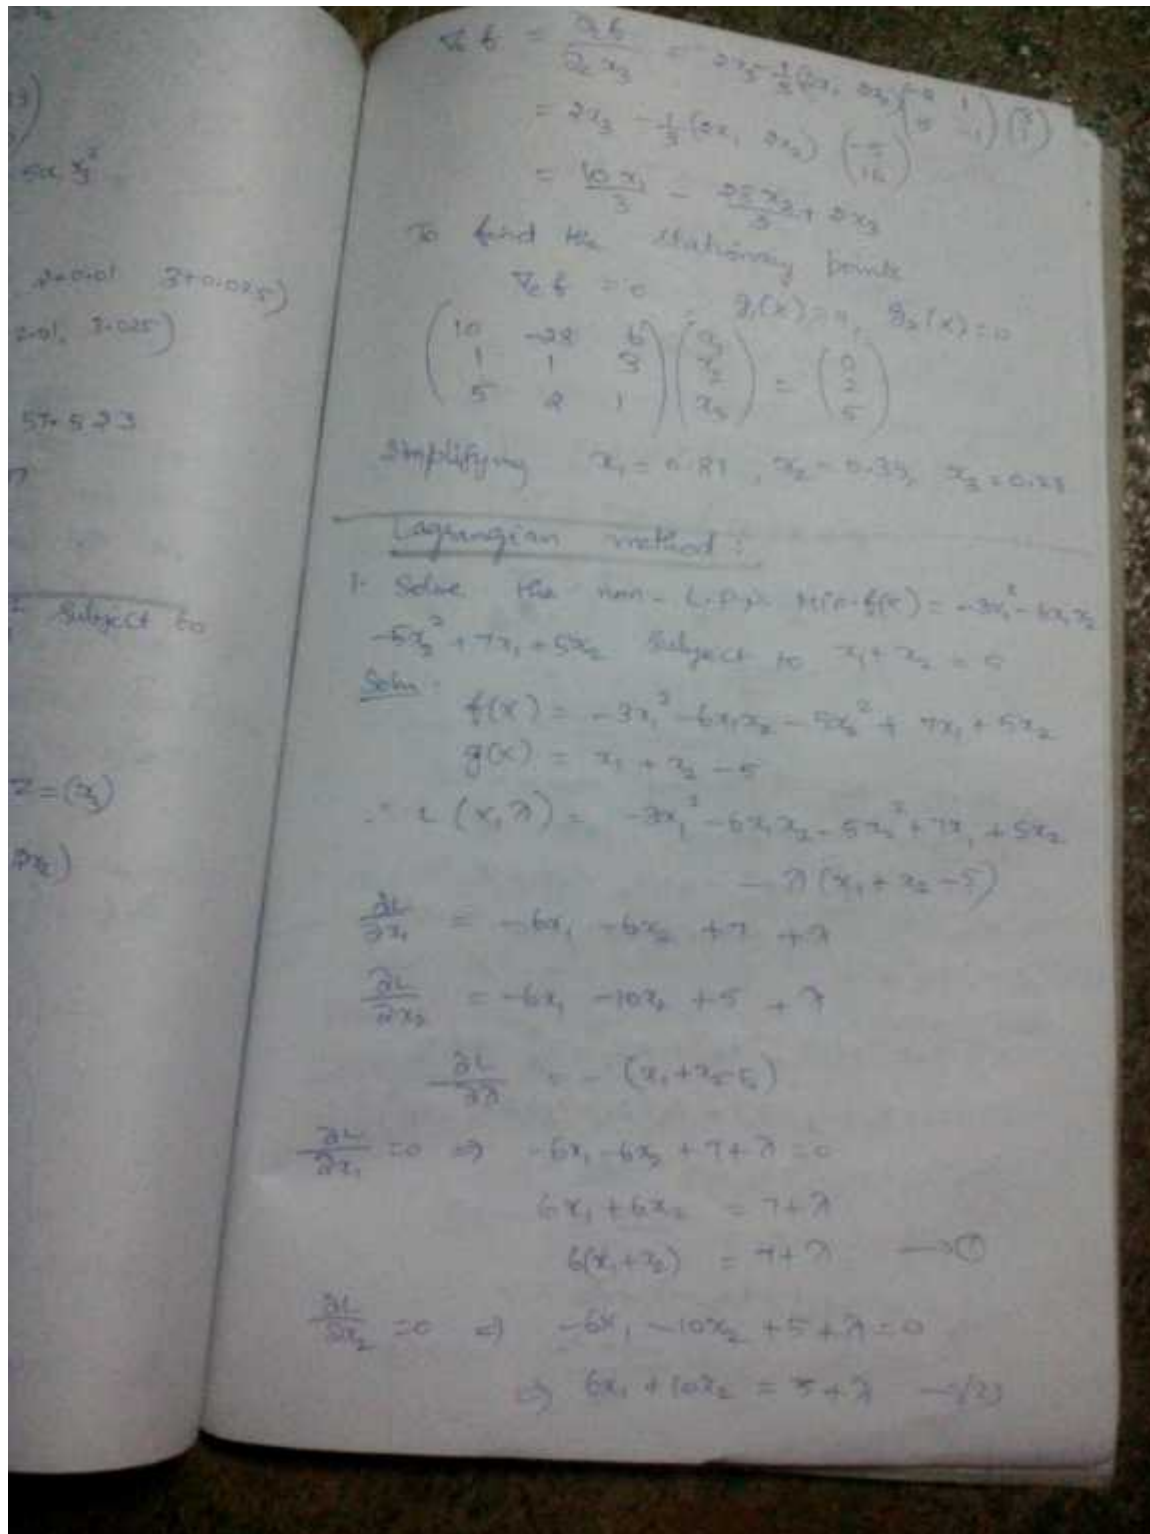 3)
5α x₃²
2+0.01 3+0.025)
2.01, 3.025)
57.523
subject to
Z = (x₃)
2x₂)
∇c f = ∂c f / ∂c x₃ = 2x₃ - 1/3 (2x₁ 2x₂) ( 1 -1) (3 1)
= 2x₃ - 1/3 (2x₁ 2x₂)
= 10x₁/3 - 28x₂/3 + 2x₃
To find the stationary points
∇c f = 0 g₁(x) = 0, g₂(x) = 0
(10 -28 6
1 1 3
5 2 1) (x₁ x₂ x₃) = (0 2 5)
Simplifying x₁ = 0.81, x₂ = 0.35, x₃ = 0.28
Lagrangian method :
1. Solve the non-L.P.P. Min f(x) = -3x₁² - 6x₁x₂
-5x₂² + 7x₁ + 5x₂ subject to x₁ + x₂ = 5
Soln:
f(x) = -3x₁² - 6x₁x₂ - 5x₂² + 7x₁ + 5x₂
g(x) = x₁ + x₂ - 5
∴ L(x, λ) = -3x₁² - 6x₁x₂ - 5x₂² + 7x₁ + 5x₂
- λ(x₁ + x₂ - 5)
∂L/∂x₁ = -6x₁ - 6x₂ + 7 + λ
∂L/∂x₂ = -6x₁ - 10x₂ + 5 + λ
∂L/∂λ = -(x₁ + x₂ - 5)
∂L/∂x₁ = 0 ⇒ -6x₁ - 6x₂ + 7 + λ = 0
6x₁ + 6x₂ = 7 + λ
6(x₁ + x₂) = 7 + λ → ①
∂L/∂x₂ = 0 ⇒ -6x₁ - 10x₂ + 5 + λ = 0
⇒ 6x₁ + 10x₂ = 5 + λ → (2)